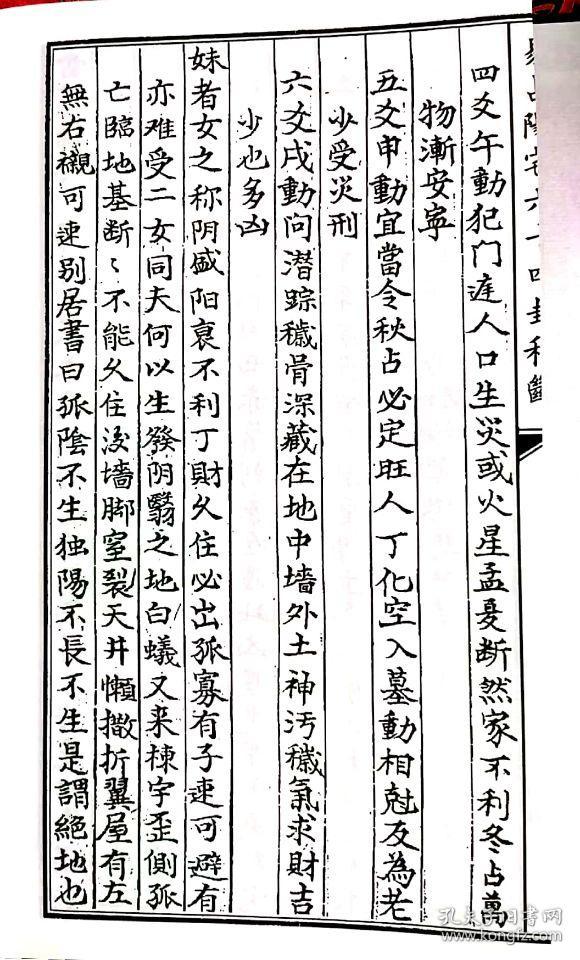 易占陽宅六十四卦秘斷
四爻午動犯门庭人口生災或火星孟夏断然家不利冬占萬
物漸安寧
五爻申動宜當令秋占必定旺人丁化空入墓動相尅反為老
少受災刑
六爻戌動问潜踪穢骨深藏在地中墙外土神污穢氣求財吉
少也多凶
妹者女之称阴盛阳衰不利丁財久住必出孤寡有子速可避有
亦难受二女同夫何以生發阴翳之地白蟻又来棟宇歪側孤
亡臨地基断〻不能久住后墙脚窒裂天井懒撒折翼屋有左
無右襯可速别居書曰孤陰不生独陽不長不生是謂絕地也
孔夫子旧书网
www.kongfz.com